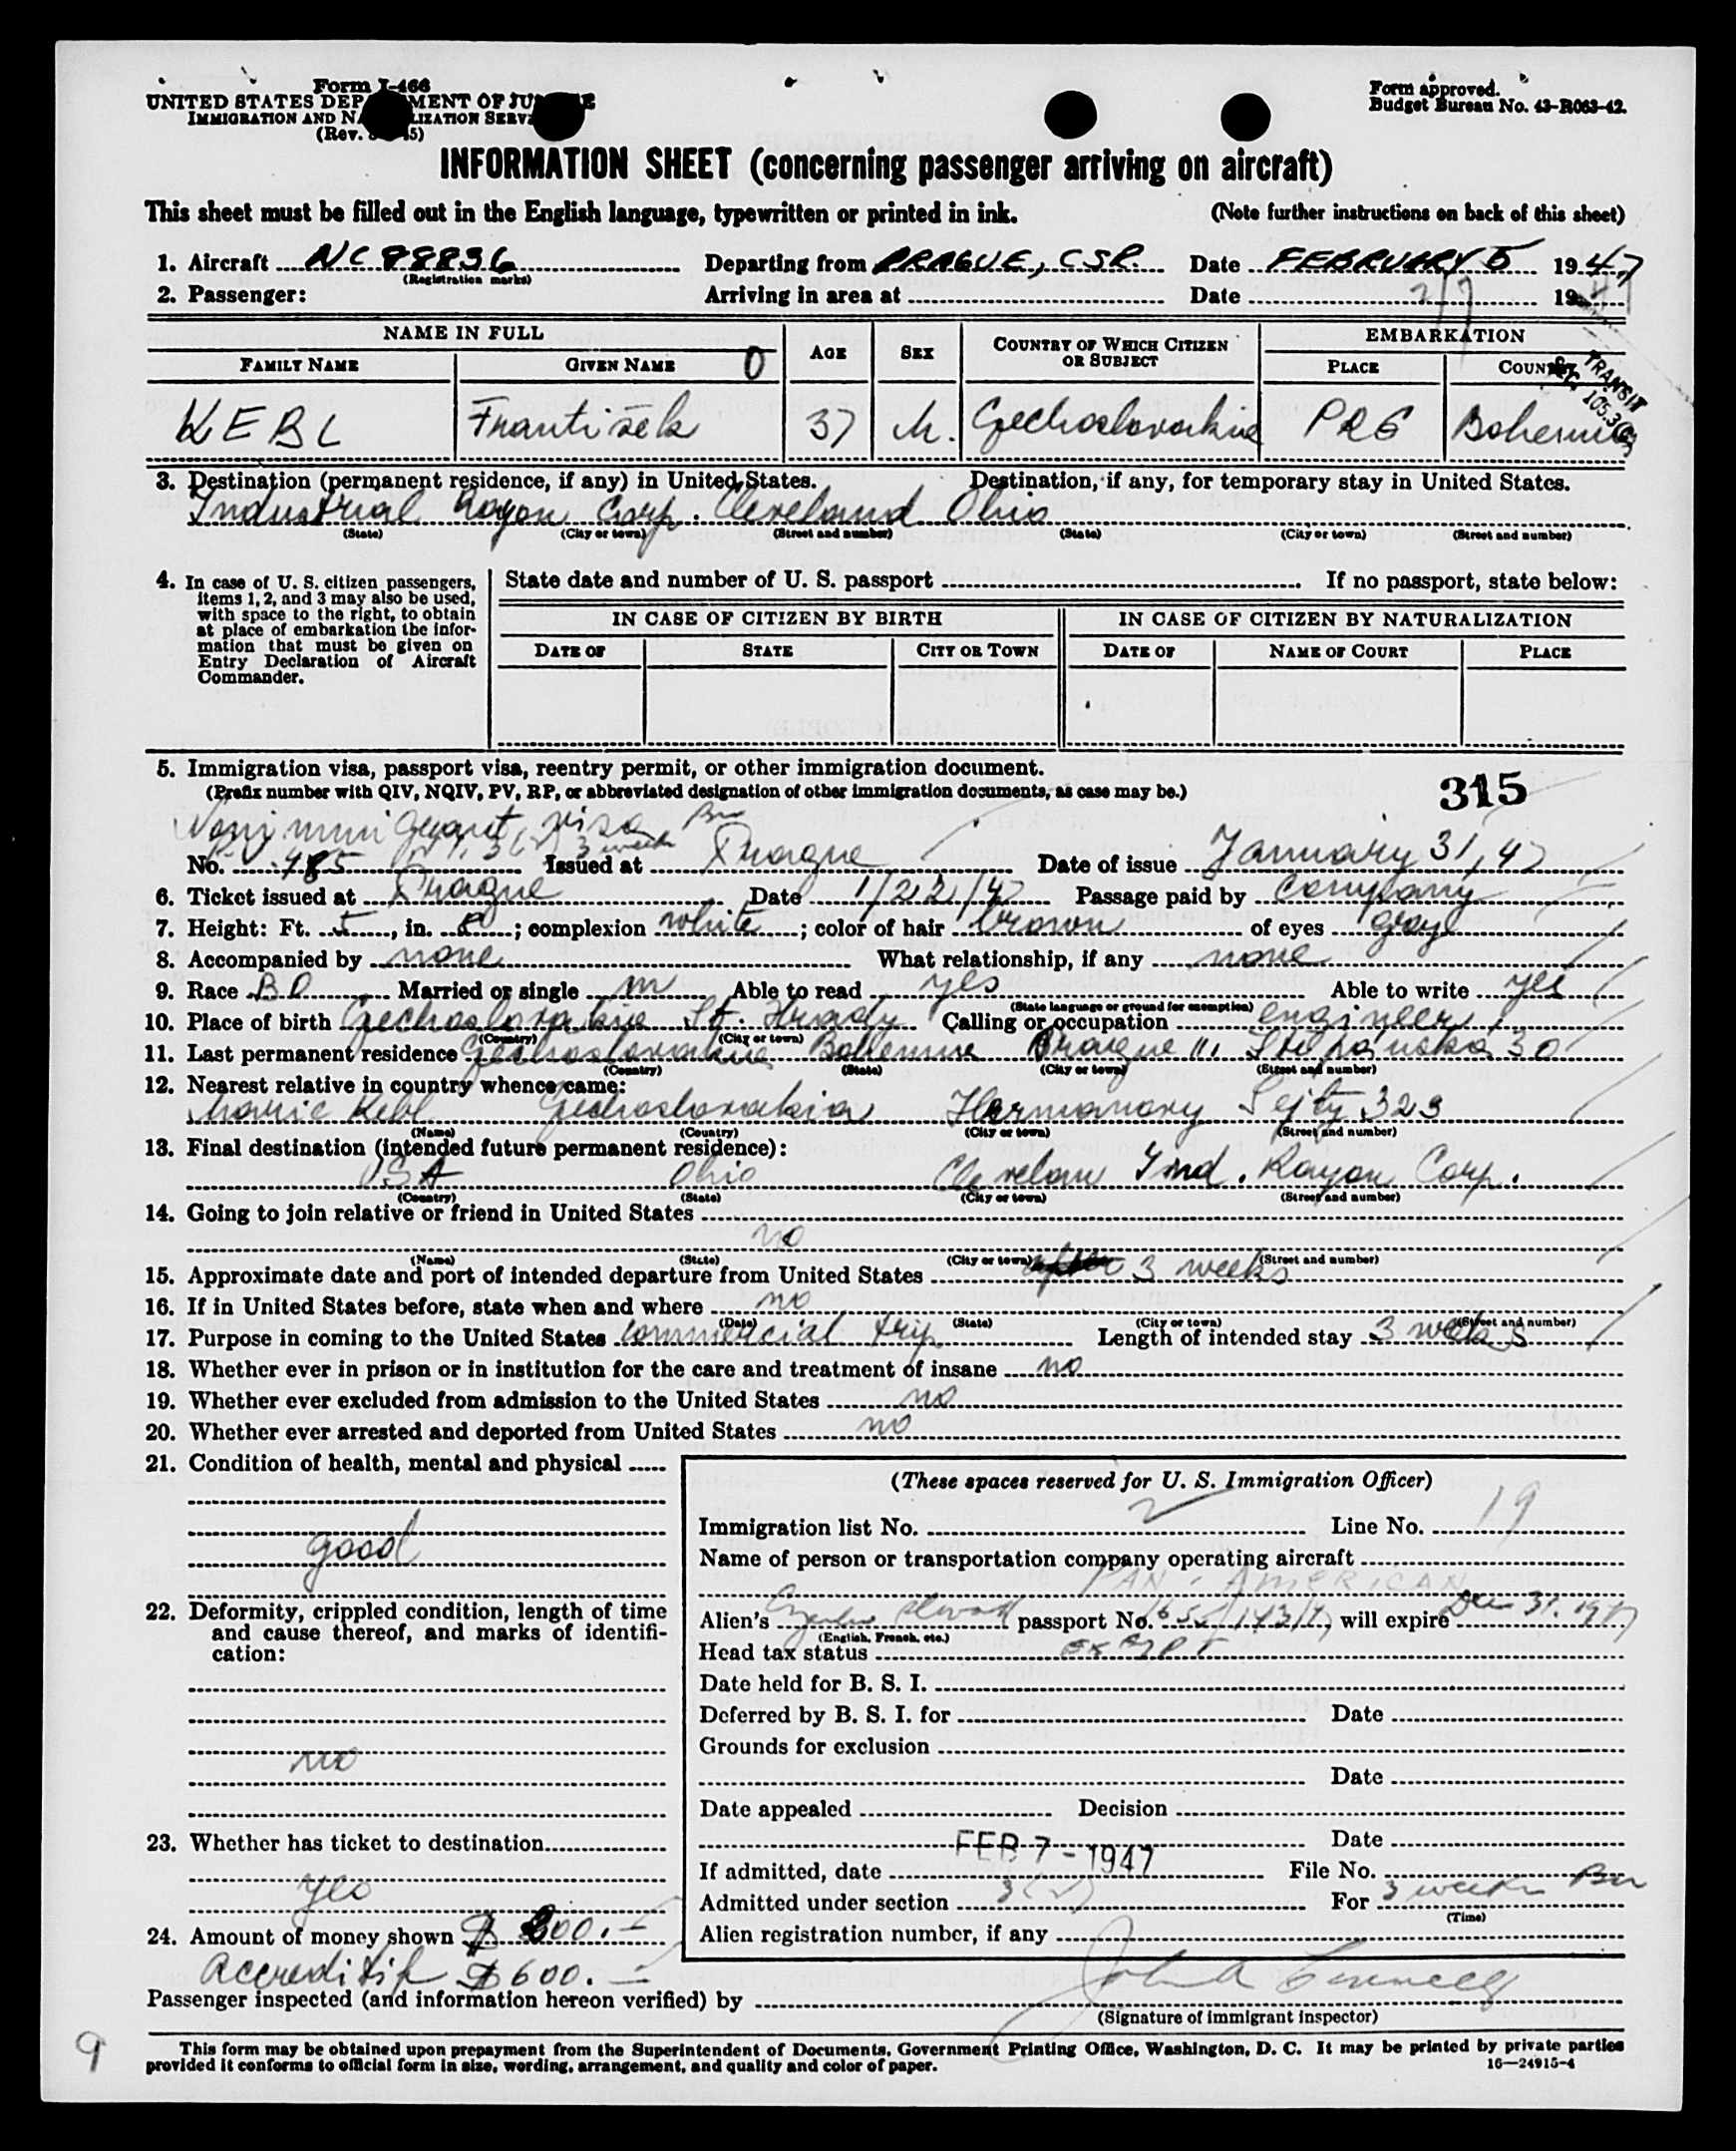 Form I-466
UNITED STATES DEP MENT OF JU
IMMIGRATION AND NA LIZATION SERV
(Rev. 5)
Form approved.
Budget Bureau No. 43-R063-42.
INFORMATION SHEET (concerning passenger arriving on aircraft)
This sheet must be filled out in the English language, typewritten or printed in ink. (Note further instructions on back of this sheet)
1. Aircraft NC88836 Departing from PRAGUE, CSR. Date FEBRUARY 5 1947
(Registration marks)
2. Passenger: Arriving in area at Date 2/7 1947
NAME IN FULL AGE SEX COUNTRY OF WHICH CITIZEN OR SUBJECT EMBARKATION
FAMILY NAME GIVEN NAME O PLACE COUN
TRANSIT
SEC. 105.3(c)
KEBL František 37 M. Czechoslovakia PRG Bohemia
3. Destination (permanent residence, if any) in United States. Destination, if any, for temporary stay in United States.
Industrial Rayon Corp. Cleveland Ohio
(State) (City or town) (Street and number) (State) (City or town) (Street and number)
4. In case of U. S. citizen passengers, items 1, 2, and 3 may also be used, with space to the right, to obtain at place of embarkation the infor-
mation that must be given on Entry Declaration of Aircraft Commander.
State date and number of U. S. passport If no passport, state below:
IN CASE OF CITIZEN BY BIRTH IN CASE OF CITIZEN BY NATURALIZATION
DATE OF STATE CITY OR TOWN DATE OF NAME OF COURT PLACE
5. Immigration visa, passport visa, reentry permit, or other immigration document.
(Prefix number with QIV, NQIV, PV, RP, or abbreviated designation of other immigration documents, as case may be.)
315
Nonimmigrant visa Bu
P.V. 3(2) 3 week
No. 485 Issued at Prague Date of issue January 31, 47
6. Ticket issued at Prague Date 1/22/47 Passage paid by Company
7. Height: Ft. 5, in. 8; complexion white; color of hair brown of eyes gray
8. Accompanied by none What relationship, if any none
9. Race Married or single m Able to read yes Able to write yes
(State language or ground for exemption)
10. Place of birth Czechoslovakia St. Hrady Calling or occupation engineer
(Country) (City or town)
11. Last permanent residence Czechoslovakia Bohemia Prague II. Štěpánská 30
(Country) (State) (City or town) (Street and number)
12. Nearest relative in country whence came:
Marie Kebl Czechoslovakia Sejty 323
(Name) (Country) (City or town) (Street and number)
13. Final destination (intended future permanent residence):
USA Ohio Clevelan Ind. Rayon Corp.
(Country) (State) (City or town) (Street and number)
14. Going to join relative or friend in United States
no
(Name) (State) (City or town) (Street and number)
15. Approximate date and port of intended departure from United States after 3 weeks
16. If in United States before, state when and where no
(Date) (State) (City or town) (Street and number)
17. Purpose in coming to the United States commercial trip Length of intended stay 3 weeks
18. Whether ever in prison or in institution for the care and treatment of insane no
19. Whether ever excluded from admission to the United States no
20. Whether ever arrested and deported from United States no
21. Condition of health, mental and physical
good
22. Deformity, crippled condition, length of time
and cause thereof, and marks of identifi-
cation:
no
23. Whether has ticket to destination
yes
24. Amount of money shown $ 200.-
Accreditif $ 600.-
(These spaces reserved for U. S. Immigration Officer)
Immigration list No. 2 Line No. 19
Name of person or transportation company operating aircraft
PAN-AMERICAN
Alien's passport No. will expire Dec 31. 1947
(English, French, etc.)
Head tax status exempt
Date held for B. S. I.
Deferred by B. S. I. for Date
Grounds for exclusion
Date
Date appealed Decision
Date
If admitted, date FEB 7 - 1947 File No.
Admitted under section 3(2) For 3 weeks Bu
(Time)
Alien registration number, if any
Passenger inspected (and information hereon verified) by
(Signature of immigrant inspector)
9
This form may be obtained upon prepayment from the Superintendent of Documents, Government Printing Office, Washington, D. C. It may be printed by private parties
provided it conforms to official form in size, wording, arrangement, and quality and color of paper. 16—24915-4